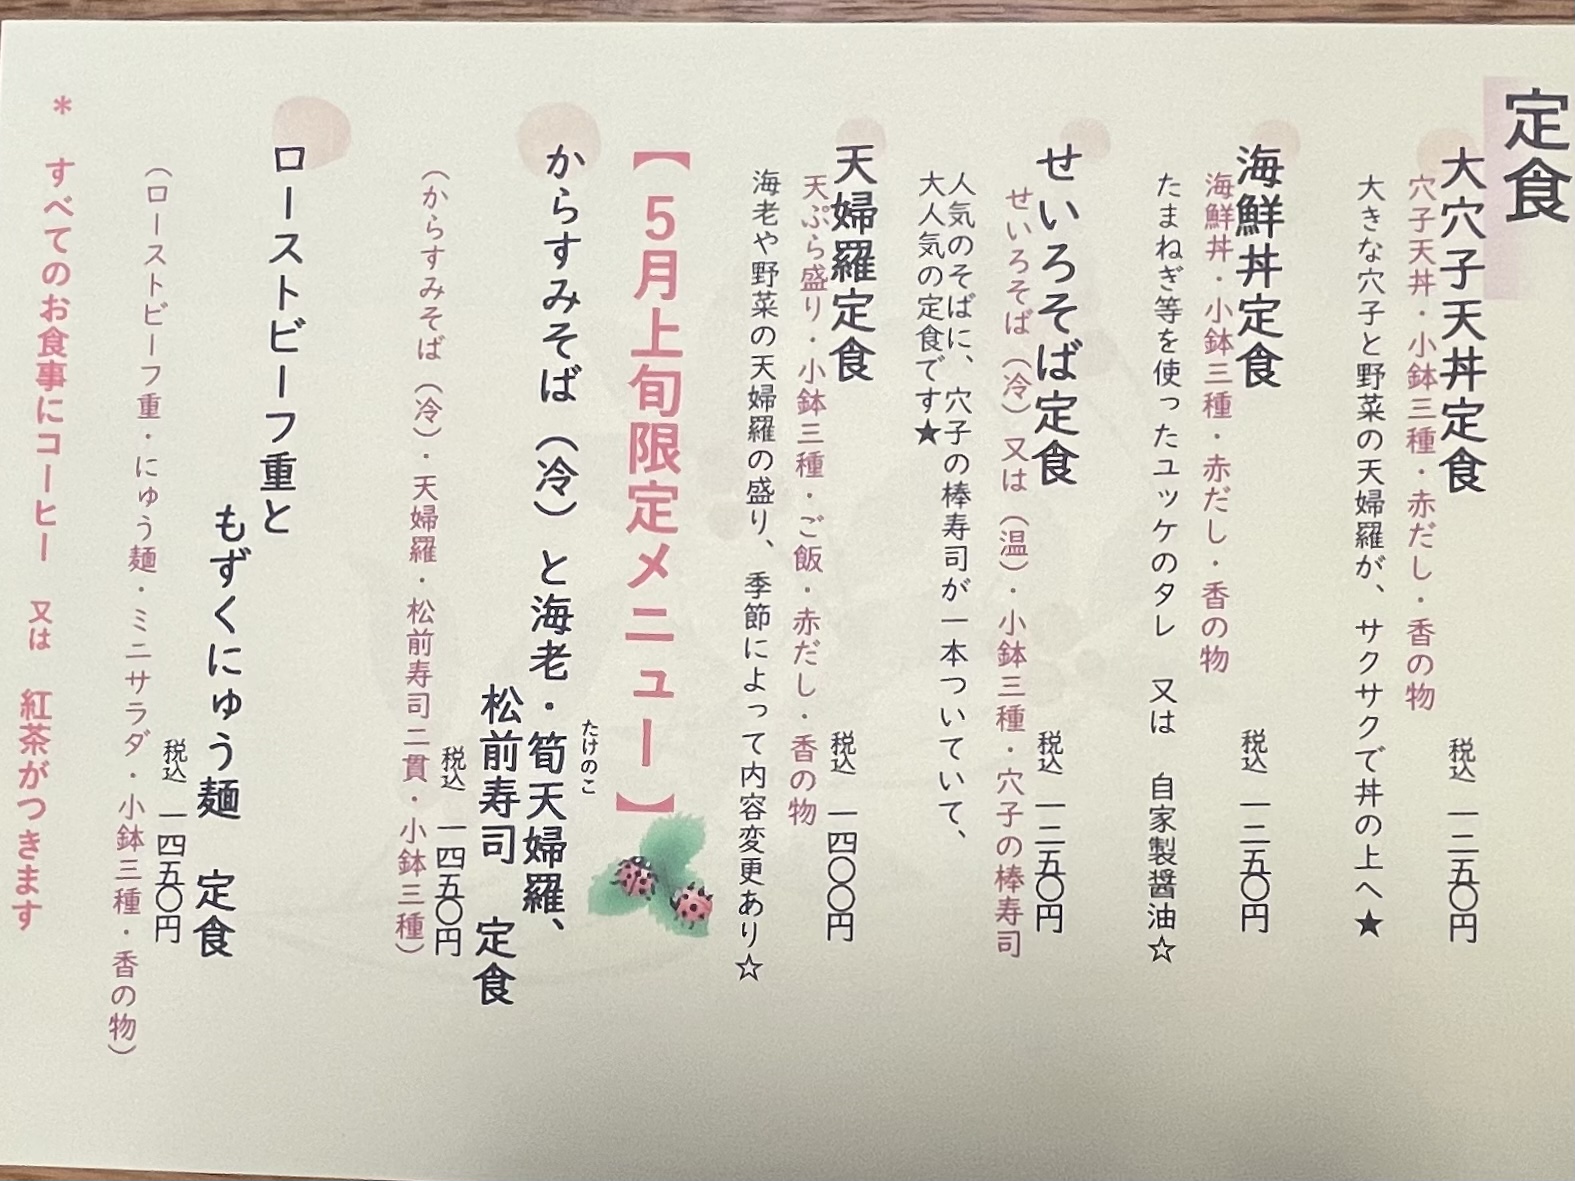 定食
大穴子天丼定食
穴子天丼・小鉢三種・赤だし・香の物
税込 一二五〇円
大きな穴子と野菜の天婦羅が、サクサクで丼の上へ★
海鮮丼定食
海鮮丼・小鉢三種・赤だし・香の物
税込 一二五〇円
たまねぎ等を使ったユッケのタレ 又は 自家製醤油☆
せいろそば定食
せいろそば（冷）又は（温）・小鉢三種・穴子の棒寿司
税込 一二五〇円
人気のそばに、穴子の棒寿司が一本ついていて、
大人気の定食です★
天婦羅定食
天ぷら盛り・小鉢三種・ご飯・赤だし・香の物
税込 一四〇〇円
海老や野菜の天婦羅の盛り、季節によって内容変更あり☆
【5月上旬限定メニュー】
からすみそば（冷）と海老・筍天婦羅、
たけのこ
松前寿司 定食
税込 一四五〇円
（からすみそば（冷）・天婦羅・松前寿司二貫・小鉢三種）
ローストビーフ重と
もずくにゅう麺 定食
税込 一四五〇円
（ローストビーフ重・にゅう麺・ミニサラダ・小鉢三種・香の物）
* すべてのお食事にコーヒー 又は 紅茶がつきます